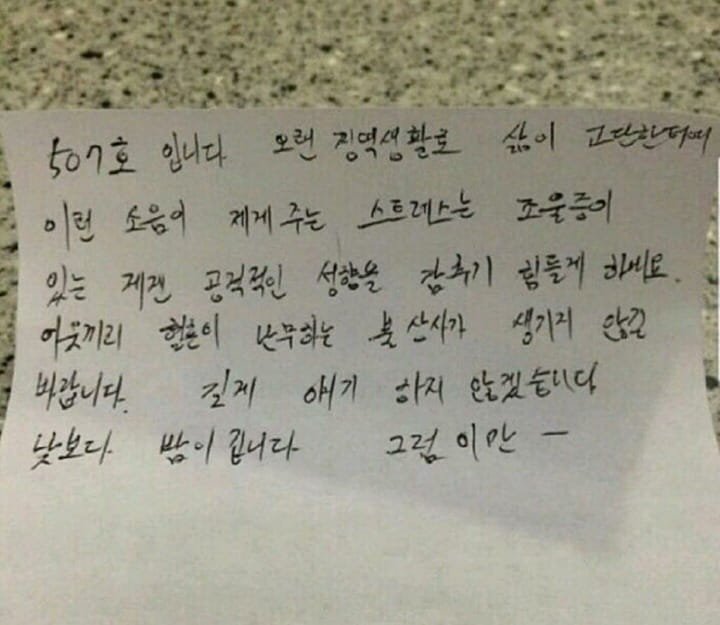 507호 입니다 오랜 징역생활로 삶이 고단한데
이런 소음이 제게 주는 스트레스는 조울증이
있는 제겐 공격적인 성향을 감추기 힘들게 하네요.
이웃끼리 혈흔이 난무하는 불상사가 생기지 않길
바랍니다. 길게 얘기 하지 않겠습니다
낮보다 밤이 깁니다 그럼 이만 ㅡ